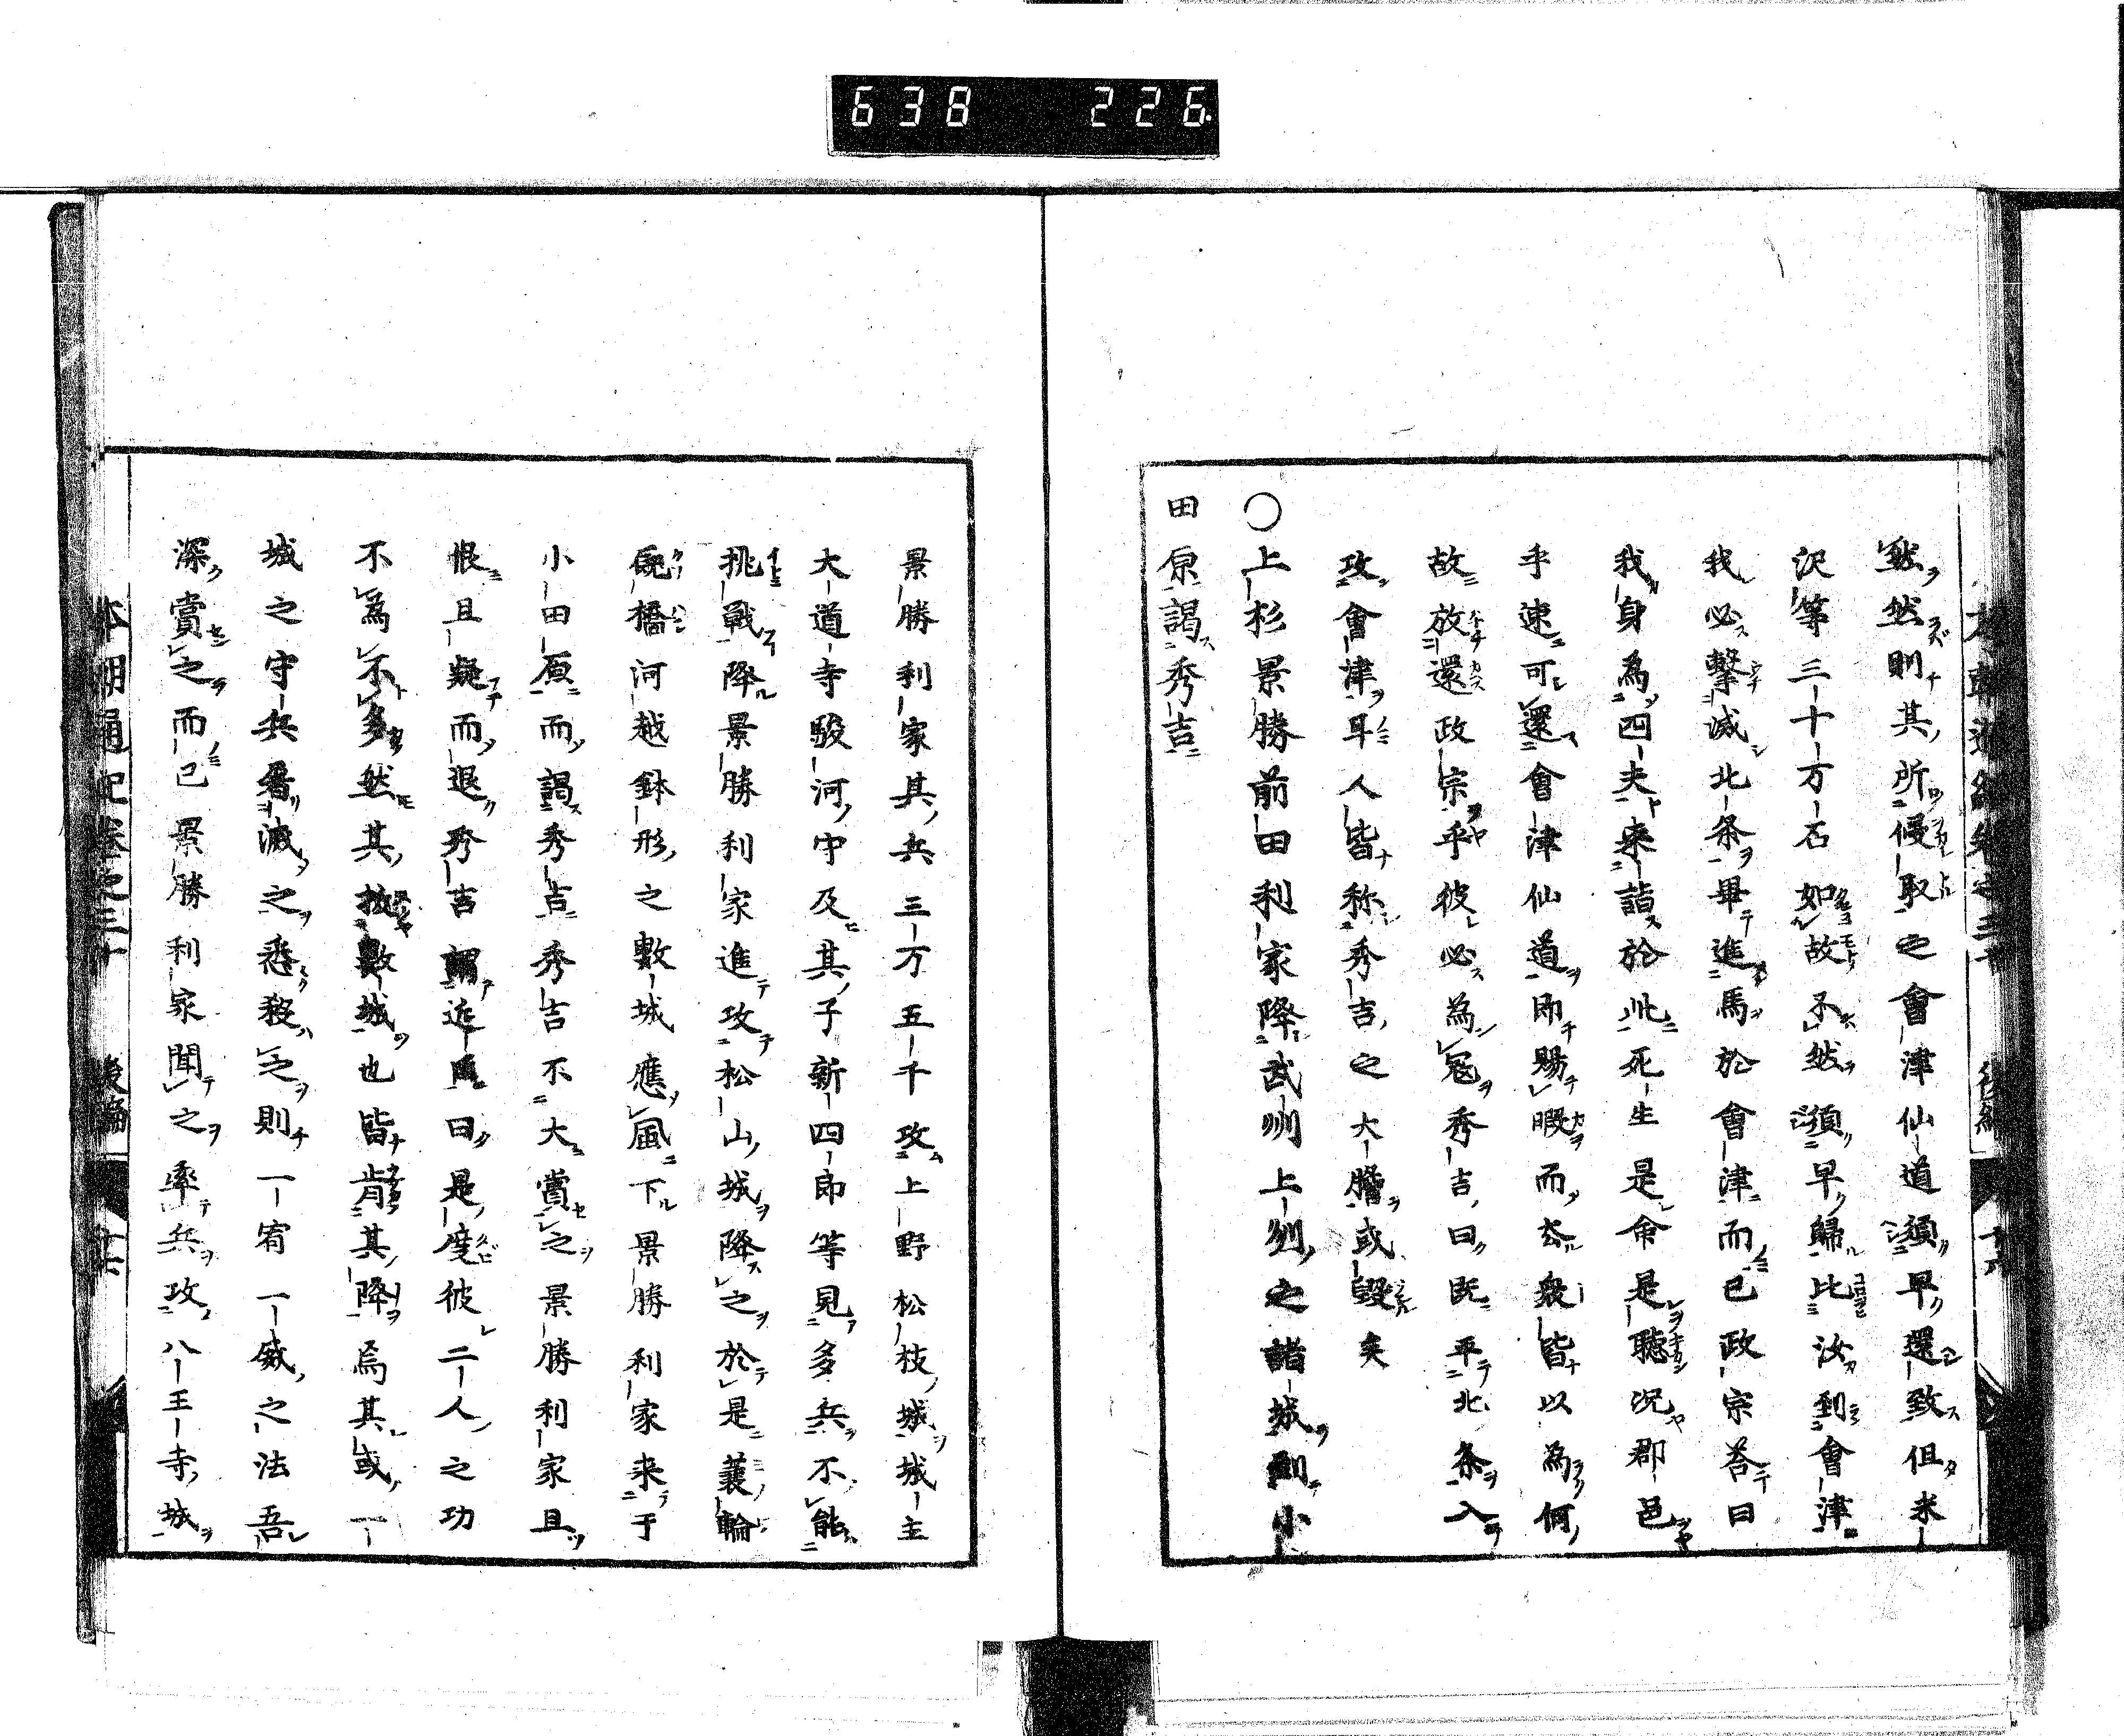 638 226
然然則其所侵取之會津仙道須早還致但米
沢等三十万石如故不然須早歸比汝到會津
我必擊滅北条畢進馬於會津而已政宗荅曰
我身為匹夫来詣於此死生是命是聽況郡邑
乎速可還會津仙道即賜暇而去衆皆以為何
故放還政宗乎彼必為冦秀吉曰既平北条入
攻會津耳人皆称秀吉之大膽或毀矣
〇上杉景勝前田利家降武州上州之諸城到小
田原謁秀吉
景勝利家其兵三万五千攻上野松枝城城主
大道寺駿河守及其子新四郎等見多兵不能
挑戰降景勝利家進攻松山城降之於是蓑輪
廐橋河越鉢形之數城應風下景勝利家来于
小田原而謁秀吉秀吉不大賞之景勝利家且
恨且疑而退秀吉謂近曰是度彼二人之功
不為不多然其拔數城也皆肯其降焉其或一
城之守兵看滅之悉殺之則一宥一威之法吾
深賞之而已景勝利家聞之率兵攻八王寺城
本朝通紀卷之二十 後編